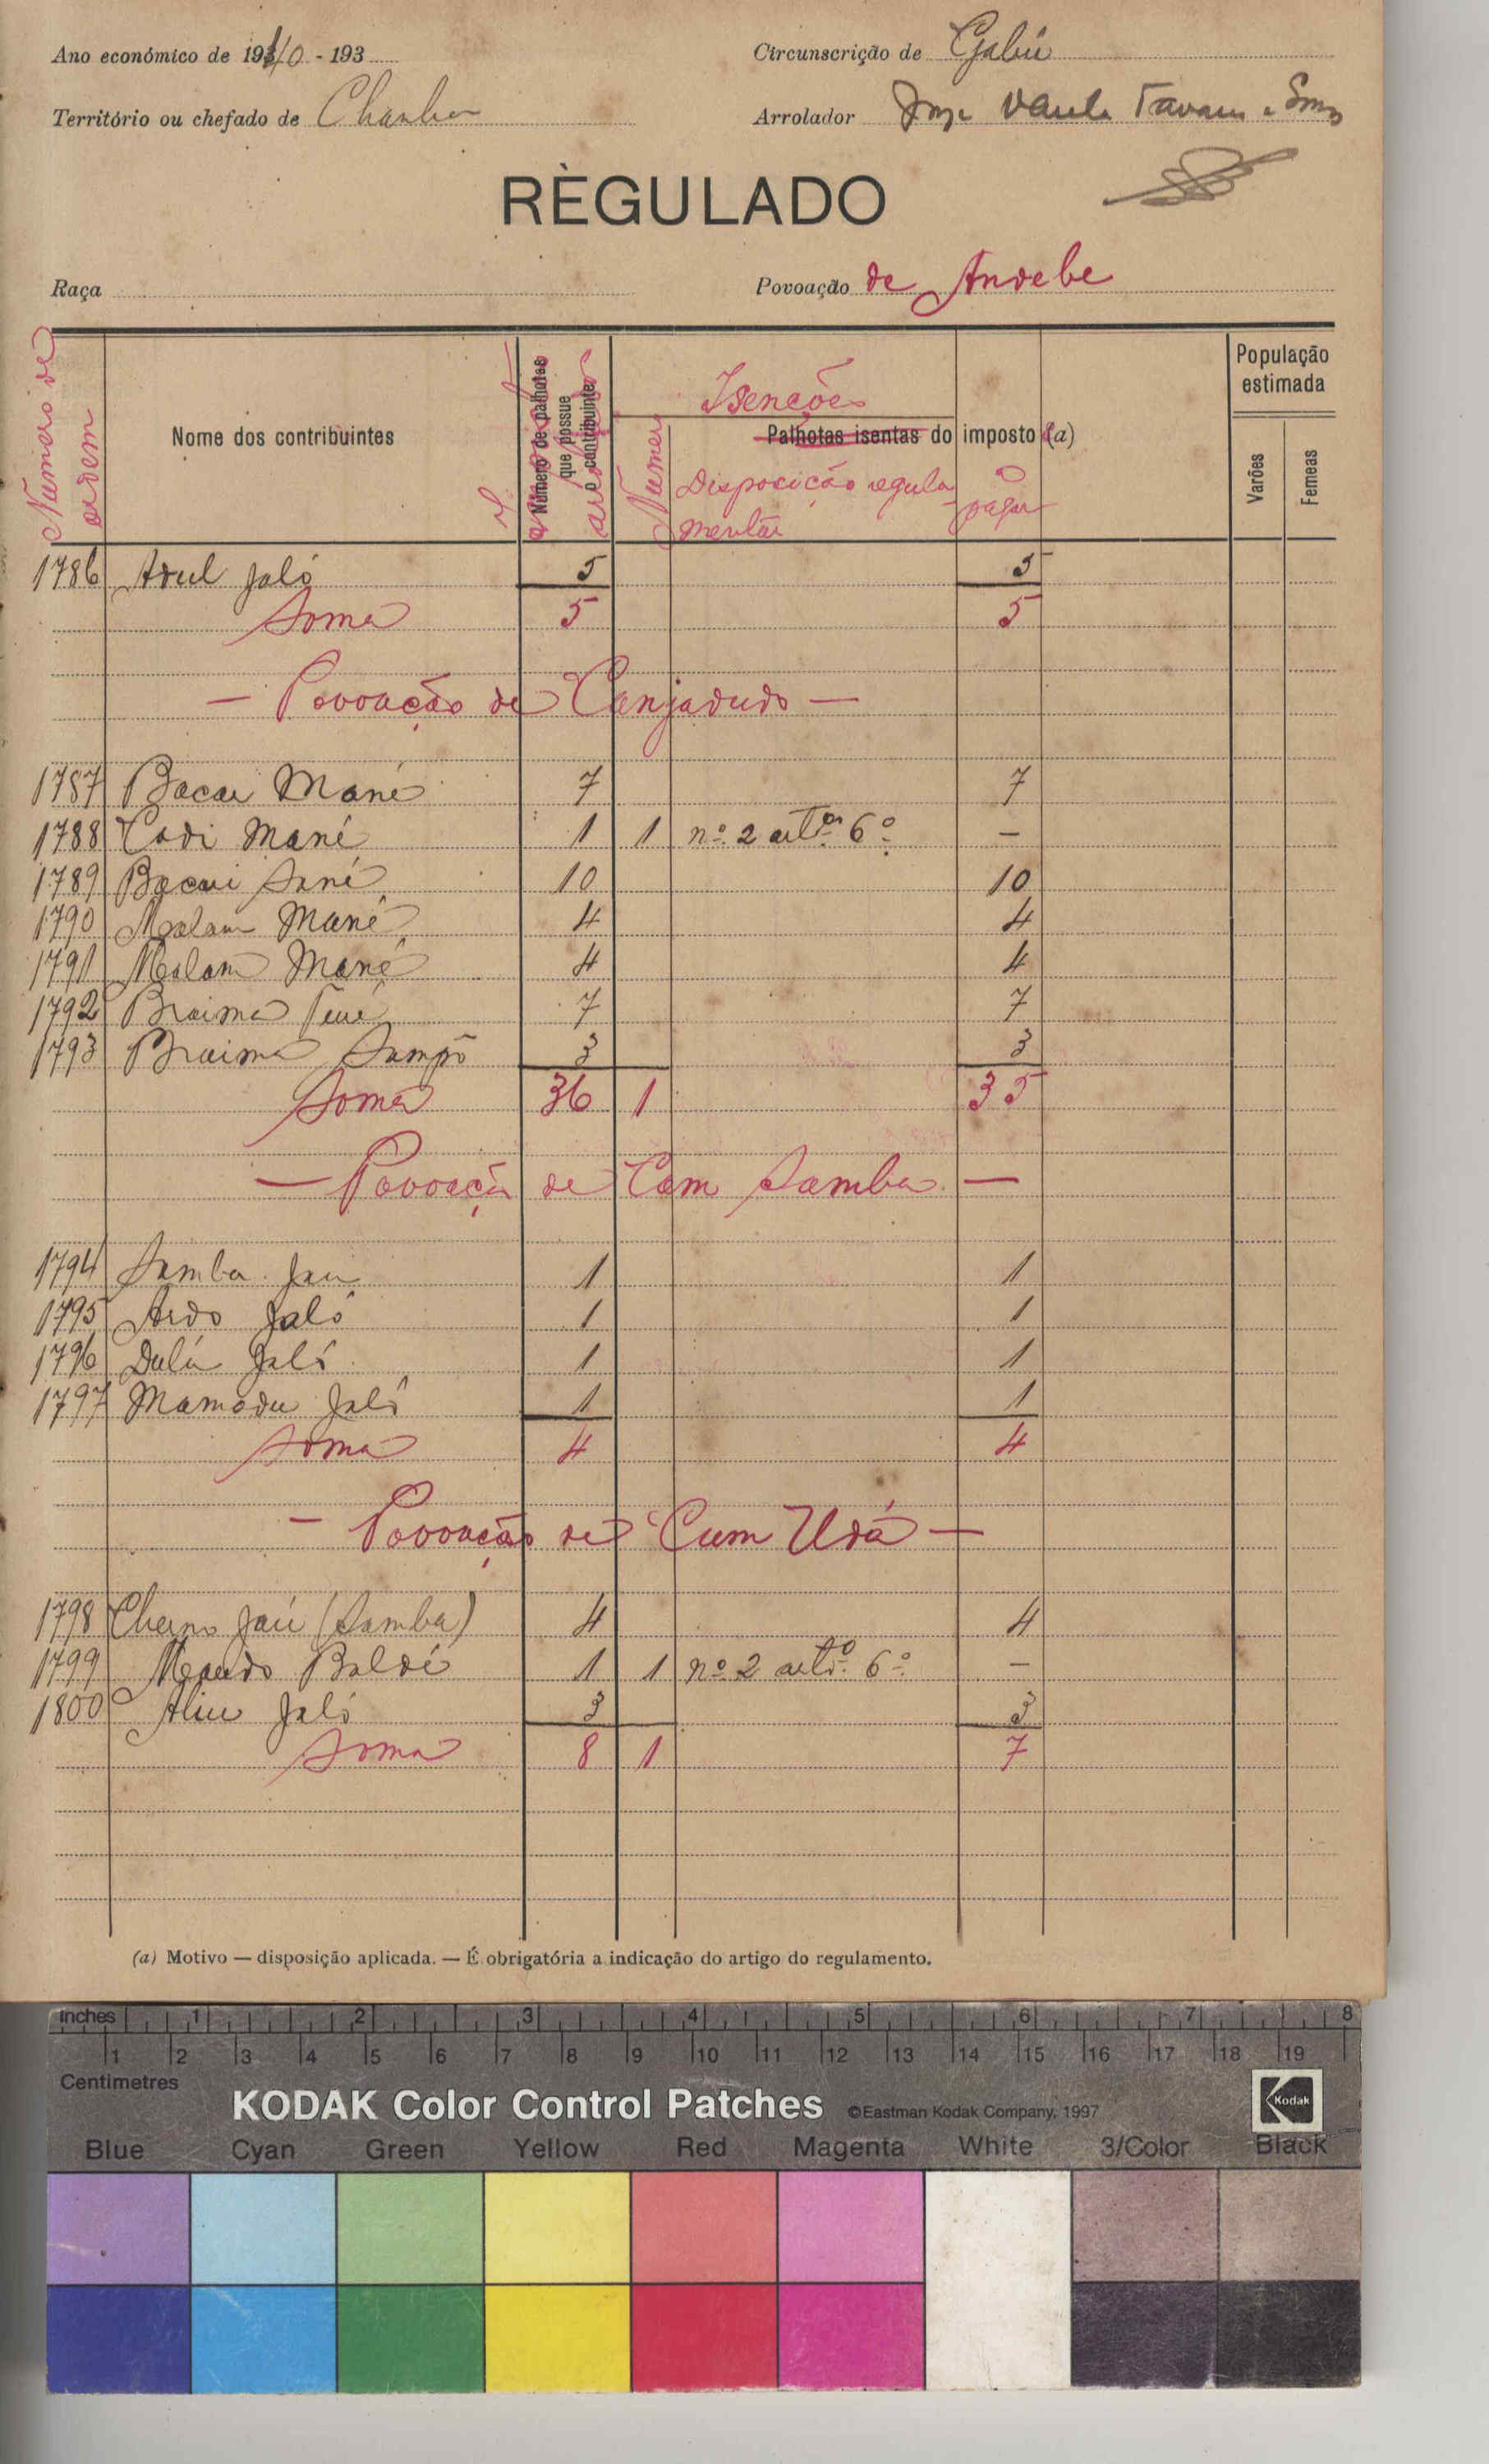 Ano económico de 1940 - 193
Circunscrição de Gabú
Território ou chefado de Chanha
Arrolador Jorge Varela Tavares e Sousa
RÈGULADO
Raça
Povoação de Andebe
Número de ordem
Nome dos contribuintes
Número de palhotas que possue o contribuinte
Isenções
Palhotas isentas do imposto (a)
Número
Disposição regulamentar
A pagar
População estimada
Varões
Femeas
1786 Adul Jaló 5 5
Soma 5 5
— Povoação de Canjadudo —
1787 Bacar Mané 7 7
1788 Codi Mané 1 1 nº 2 artº 6º —
1789 Bacari Sané 10 10
1790 Malam Mané 4 4
1791 Malam Mané 4 4
1792 Braima 7 7
1793 Braima Sampó 3 3
Soma 36 1 35
— Povoação de Cam Samba —
1794 Samba Jau 1 1
1795 Ardo Jaló 1 1
1796 Dulá Jaló 1 1
1797 Mamadu Jaló 1 1
Soma 4 4
— Povoação de Cum Udá —
1798 Cherno Jaú (Samba) 4 4
1799 Maudo Baldé 1 1 nº 2 artº 6º —
1800 Aliu Jaló 3 3
Soma 8 1 7
(a) Motivo — disposição aplicada. — É obrigatória a indicação do artigo do regulamento.
inches 1 2 3 4 5 6 7 8
1 2 3 4 5 6 7 8 9 10 11 12 13 14 15 16 17 18 19
Centimetres
KODAK Color Control Patches ©Eastman Kodak Company, 1997 Kodak
Blue Cyan Green Yellow Red Magenta White 3/Color Black